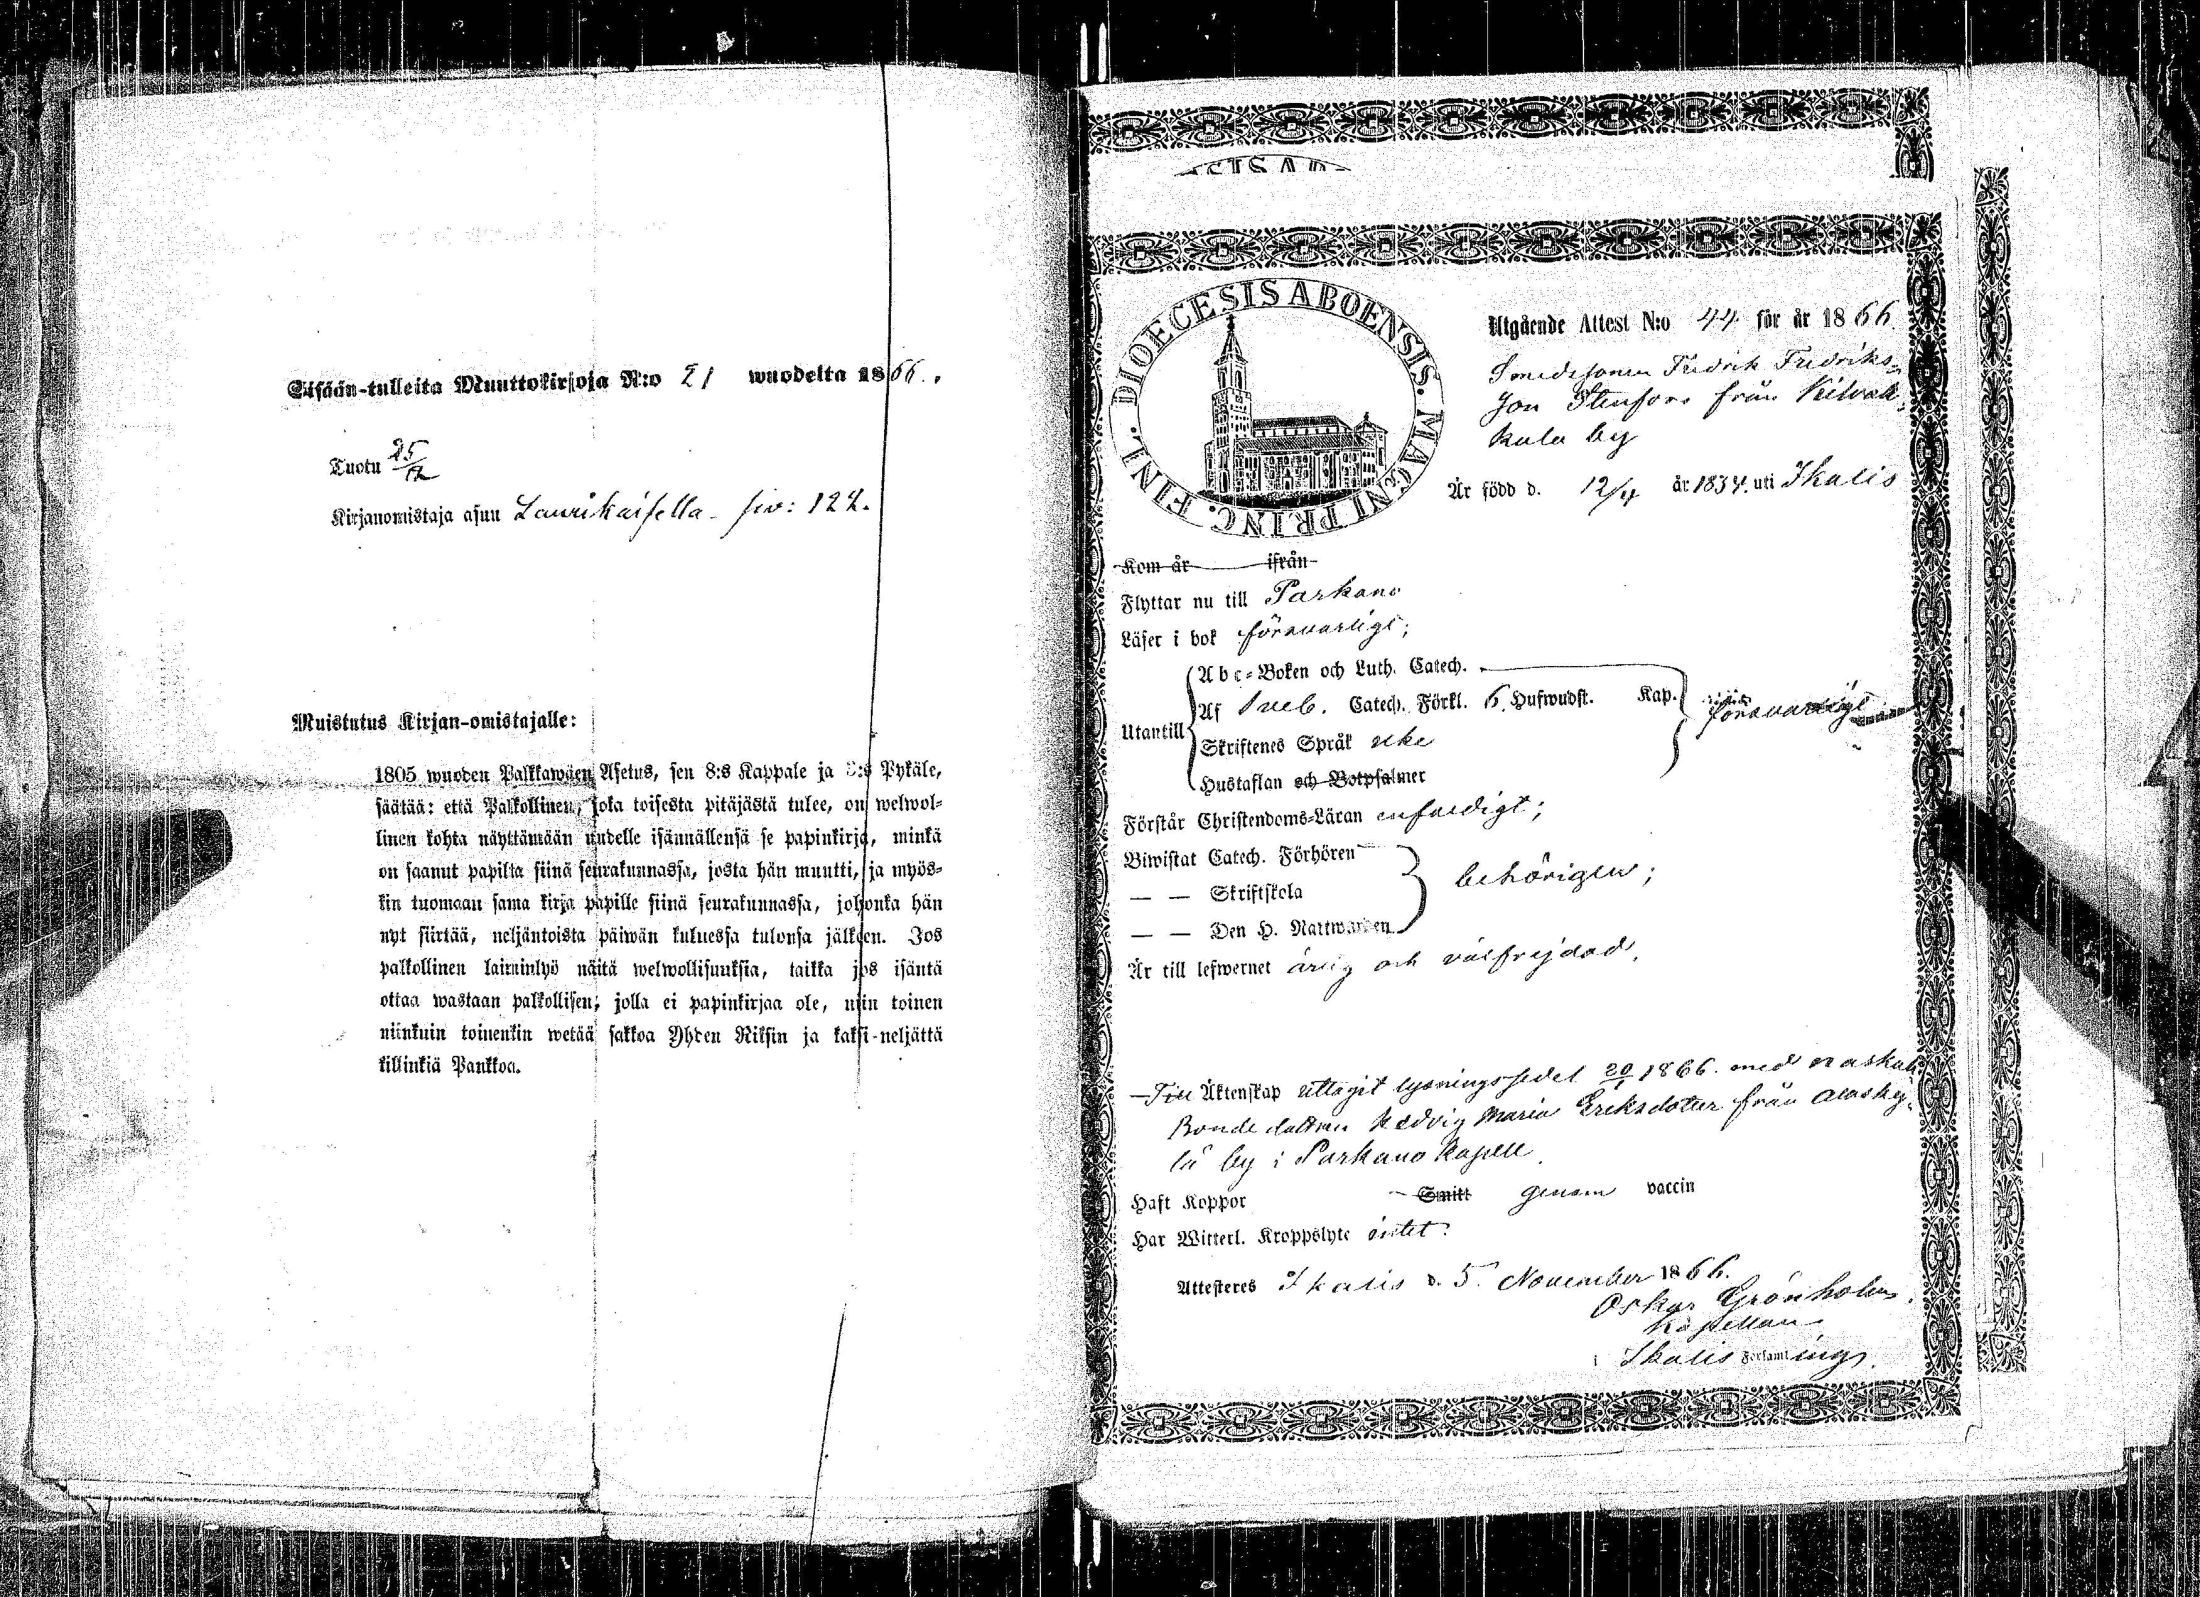 Sisään-tulleita Muuttokirjoja N:o 21 wuodelta 1866.
Tuotu 25/12
Kirjanomistaja asuu Laurikaisella siv: 122.
Muistutus Kirjan-omistajalle:
1805 wuoden Palkkawäen Asetus, sen 8:s Kappale ja :s Pykäle,
säätää: että Palkollinen, joka toisesta pitäjästä tulee, on welwol-
linen kohta näyttämään uudelle isännällensä se papinkirja, minkä
on saanut papilta siinä seurakunnassa, josta hän muutti, ja myös-
kin tuomaan sama kirja papille siinä seurakunnassa, johonka hän
nyt siirtää, neljäntoista päiwän kuluessa tulonsa jälkeen. Jos
palkollinen laiminlyö näitä welwollisuuksia, taikka jos isäntä
ottaa wastaan palkollisen, jolla ei papinkirjaa ole, niin toinen
niinkuin toinenkin wetää sakkoa Yhden Riksin ja kaksi-neljättä
killinkiä Pankkoa.
DIOECESIS ABOENSIS. MAGNI PRINC. FINL.
Utgående Attest N:o 44 för år 1866.
Smedssonen Fredrik Fredriks-
son Stenfors från Kilvak-
kala by
Är född d. 12/4 år 1834. uti Ikalis
Kom år ifrån
Flyttar nu till Parkano
Läser i bok försvarligt;
Utantill
Abc-Boken och Luth. Catech.
Af Sveb. Catech. Förkl. 6. Hufwudst. Kap.
försvarligt
Skriftenes Språk icke
Hustaflan och Botpsalmer
Förstår Christendoms-Läran enfaldigt;
Biwistat Catech. Förhören
— — Skriftskola
behörigen;
— — Den H. Nattwarden
Är till lefwernet ärlig och välfrejdad.
Till Äktenskap uttagit lysningssedel 20/1 1866. med
Bondedottren Hedvig Maria Eriksdotter från Alasky-
lä by i Parkano Kapell.
Haft Koppor Smitt genom vaccin
Har Witterl. Kroppslyte intet.
Attesteres Ikalis d. 5. November 1866.
Oskar Grönholm.
Kapellan
i Ikalis Församlings.